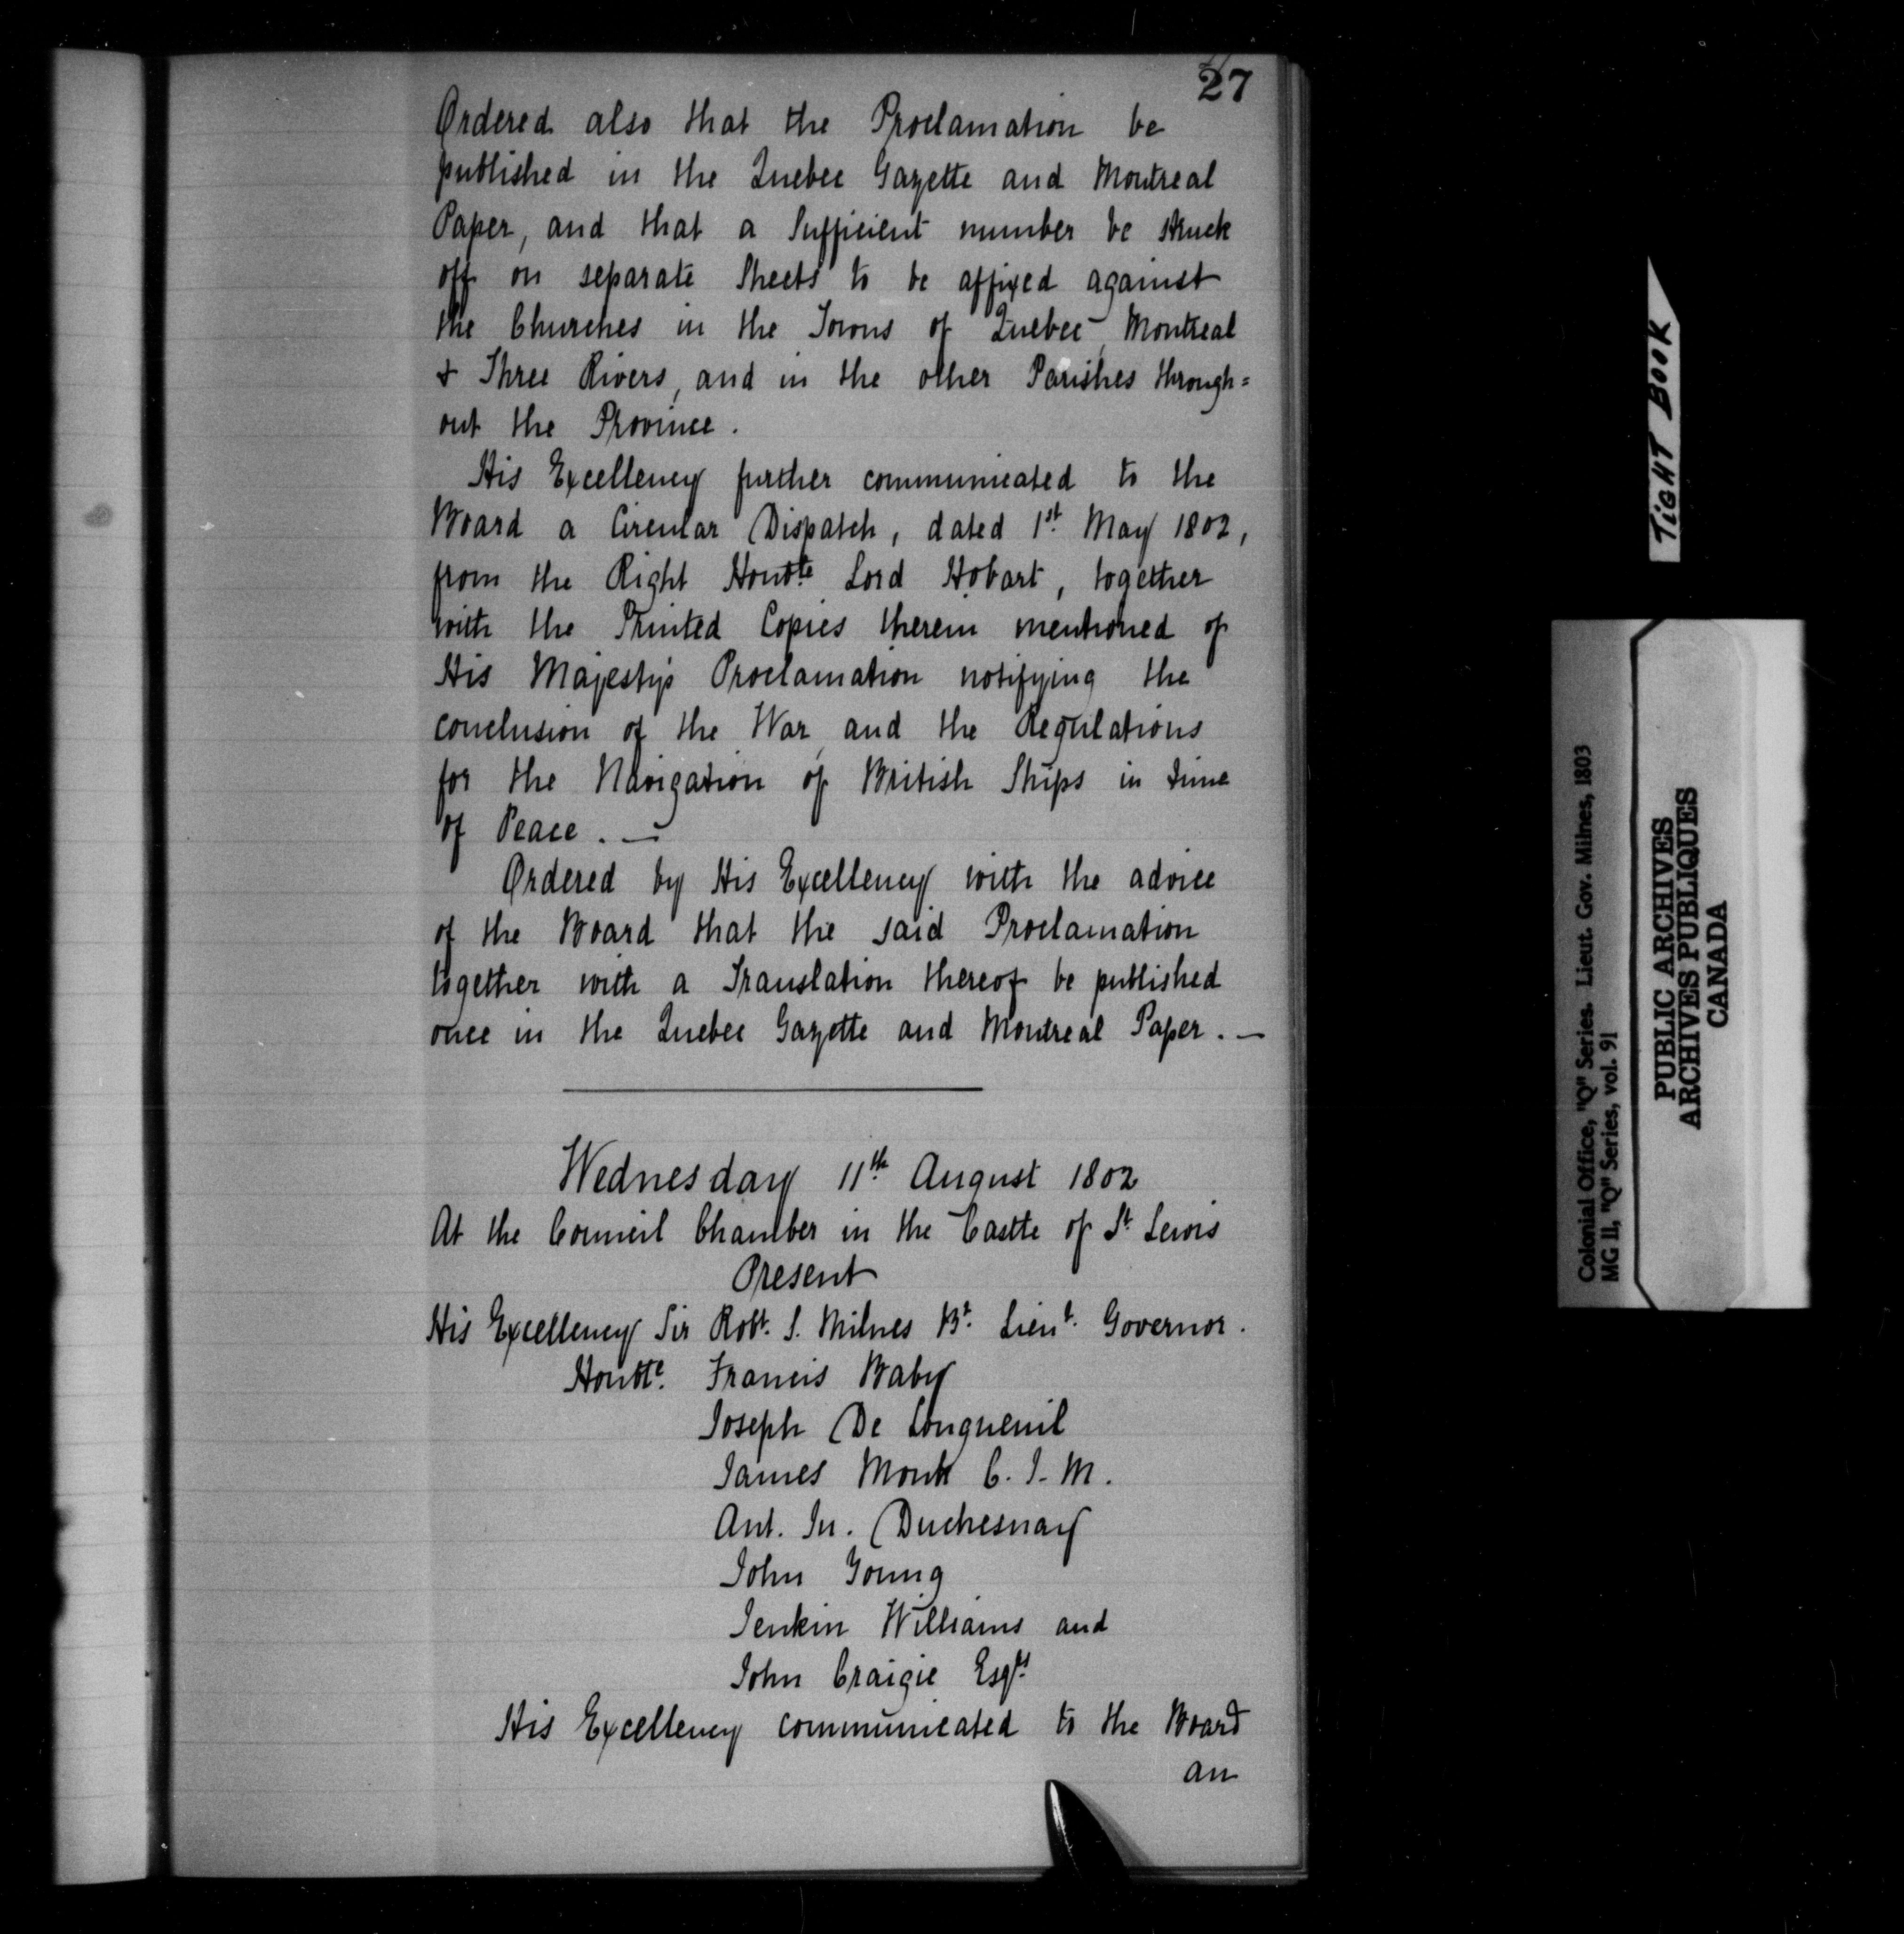 27
Ordered also that the Proclamation be
published in the Quebec Gazette and Montreal
Paper, and that a Sufficient number be struck
off on separate Sheets to be affixed against
the Churches in the Towns of Quebec, Montreal
& Three Rivers, and in the other Parishes through=
out the Province.
His Excellency further communicated to the
Board a Circular Dispatch, dated 1st May 1802,
from the Right Honble Lord Hobart, together
with the Printed Copies therein mentioned of
His Majesty's Proclamation notifying the
conclusion of the War, and the Regulations
for the Navigation of British Ships in time
of Peace. —
Ordered by His Excellency with the advice
of the Board that the said Proclamation
together with a Translation thereof be published
once in the Quebec Gazette and Montreal Paper. —
Wednesday 11th August 1802
At the Council Chamber in the Castle of St Lewis
Present
His Excellency Sir Robt. S. Milnes Bt. Lieut. Governor.
Honble. Francis Baby
Joseph De Longueuil
James Monk C. J. M.
Ant. Ju. Duchesnay
John Young
Jenkin Williams and
John Craigie Esqrs
His Excellency communicated to the Board
an
TIGHT BOOK
Colonial Office, "Q" Series. Lieut. Gov. Milnes, 1803
MG 11, "Q" Series, vol. 91
PUBLIC ARCHIVES
ARCHIVES PUBLIQUES
CANADA